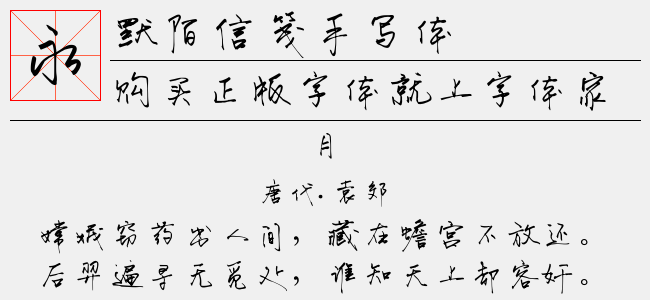 永
默陌信笺手写体
购买正版字体就上字体家
月
唐代·袁郊
嫦娥窃药出人间，藏在蟾宫不放还。
后羿遍寻无觅处，谁知天上却容奸。